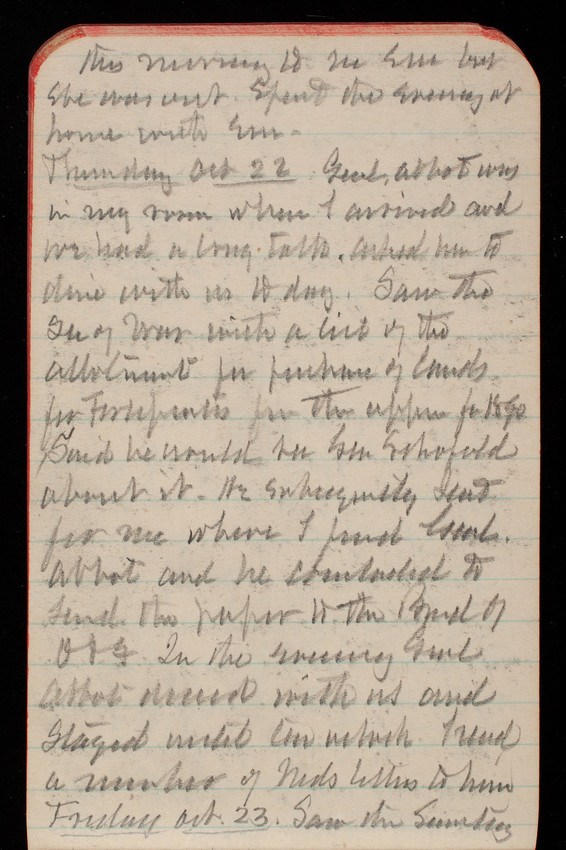 this morning to see Em but
she was out. Spent the evening at
home with Em.
Thursday Oct 22 Genl. Abbot was
in my room when I arrived and
we had a long talk. asked him to
dine with us to day. Saw the
Sec of War with a list of the
allotment for purchase of lands
for Fortificatis from the appn for 1890
Said he would see Gen Schofield
about it. He subsequently sent
for me where I found Genl.
Abbot and he concluded to
send the paper to the Board of
O & F. In the evening Genl
Abbot dined with us and
Stayed until ten oclock. I read
a number of Neds letters to him
Friday Oct. 23. Saw the Secretary